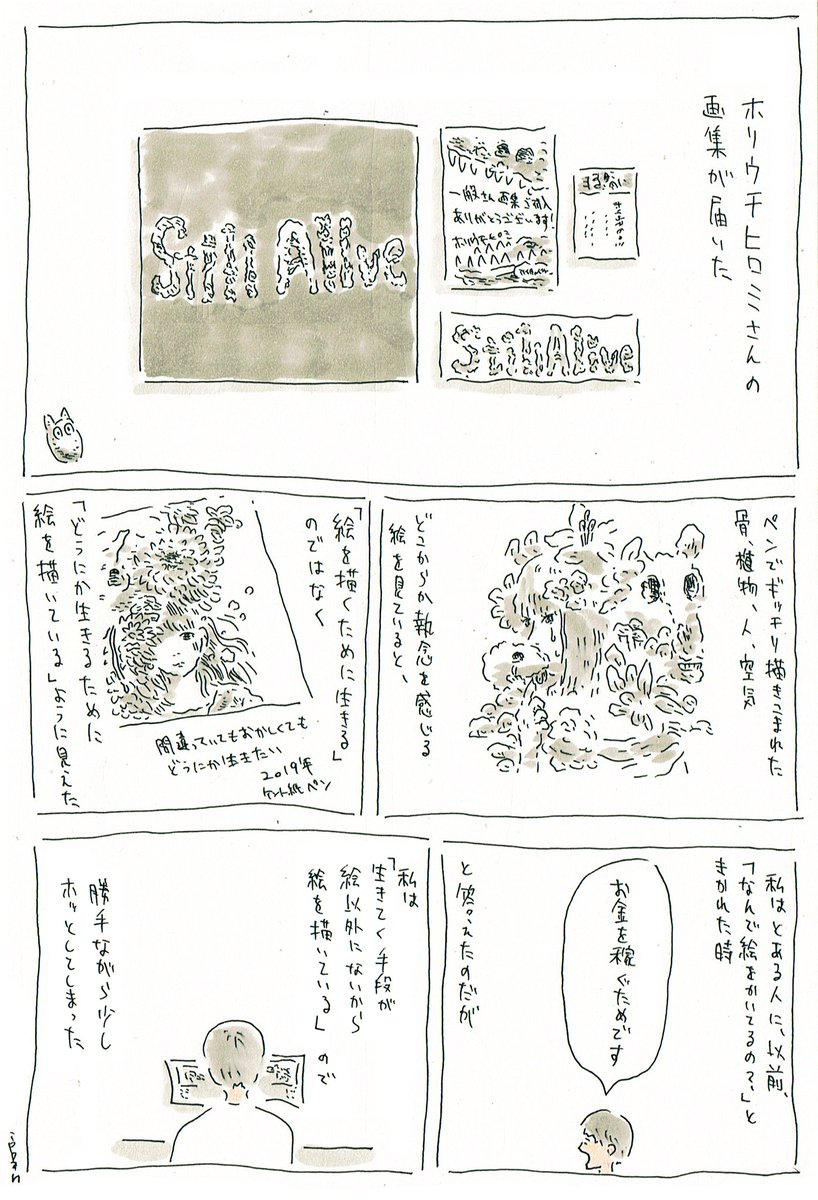 ホリウチヒロミさんの
画集が届いた
Still Alive
一般さん画集ご購入
ありがとうございます!
Still Alive
ペンでギッチリ描きこまれた
骨、植物、人、空気
どこからか執念を感じる
絵を見ていると、
「絵を描くために生きる」
のではなく
間違っていてもおかしくても
どうにか生きたい
2019年
ケント紙 ペン
「どうにか生きるために
絵を描いている」ように見えた
私はとある人に、以前、
「なんで絵をかいてるの?」と
きかれた時
お金を稼ぐためです
と答えたのだが
私は
「生きてく手段が
絵以外にないから
絵を描いている」ので
勝手ながら少し
ホッとしてしまった